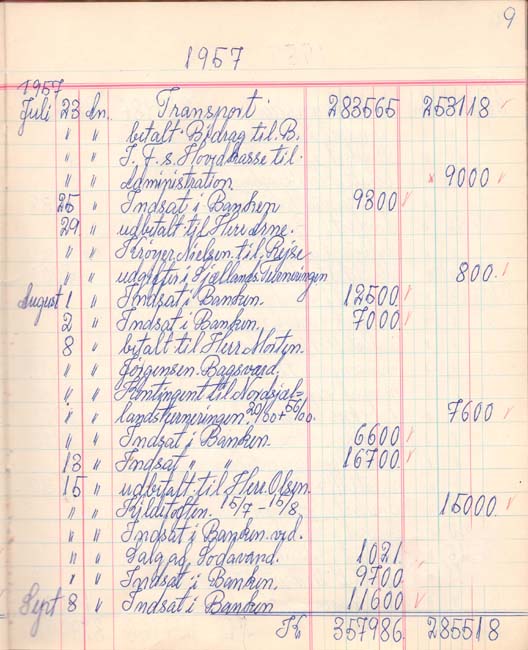 9
1957
1957
Juli 23 dn. Transport. 283565 253118
" " betalt Bidrag til B.
" " J. F. s. Hovedkasse til.
" " Administration 9000
25 " Indsat i Banken 9300
29 " udbetalt til Herr Arne.
" " Krøyer Nielsen. til. Rejse
" " udgifter i Sjællands. Turneringen 800.
August 1 " Indsat i Banken. 12500
2 " Indsat i Banken. 7000
8 " betalt til Herr Morten.
" " Jørgensen. Bagsværd.
" " Kontingent til Nordsjæl=
" " landsturneringen. 20/00 + 56/00. 7600
" " Indsat i Banken. 6600
13 " Indsat " " 16700
15 " udbetalt. til Herr. Olsen.
" " Kildetoften. 15/7 - 15/8 15000.
" " Indsat i Banken. ved.
" " Salg af Sodavand. 1021
" " Indsat i Banken. 9700
Sept 8 " Indsat i Banken 11600
K 357986 285518